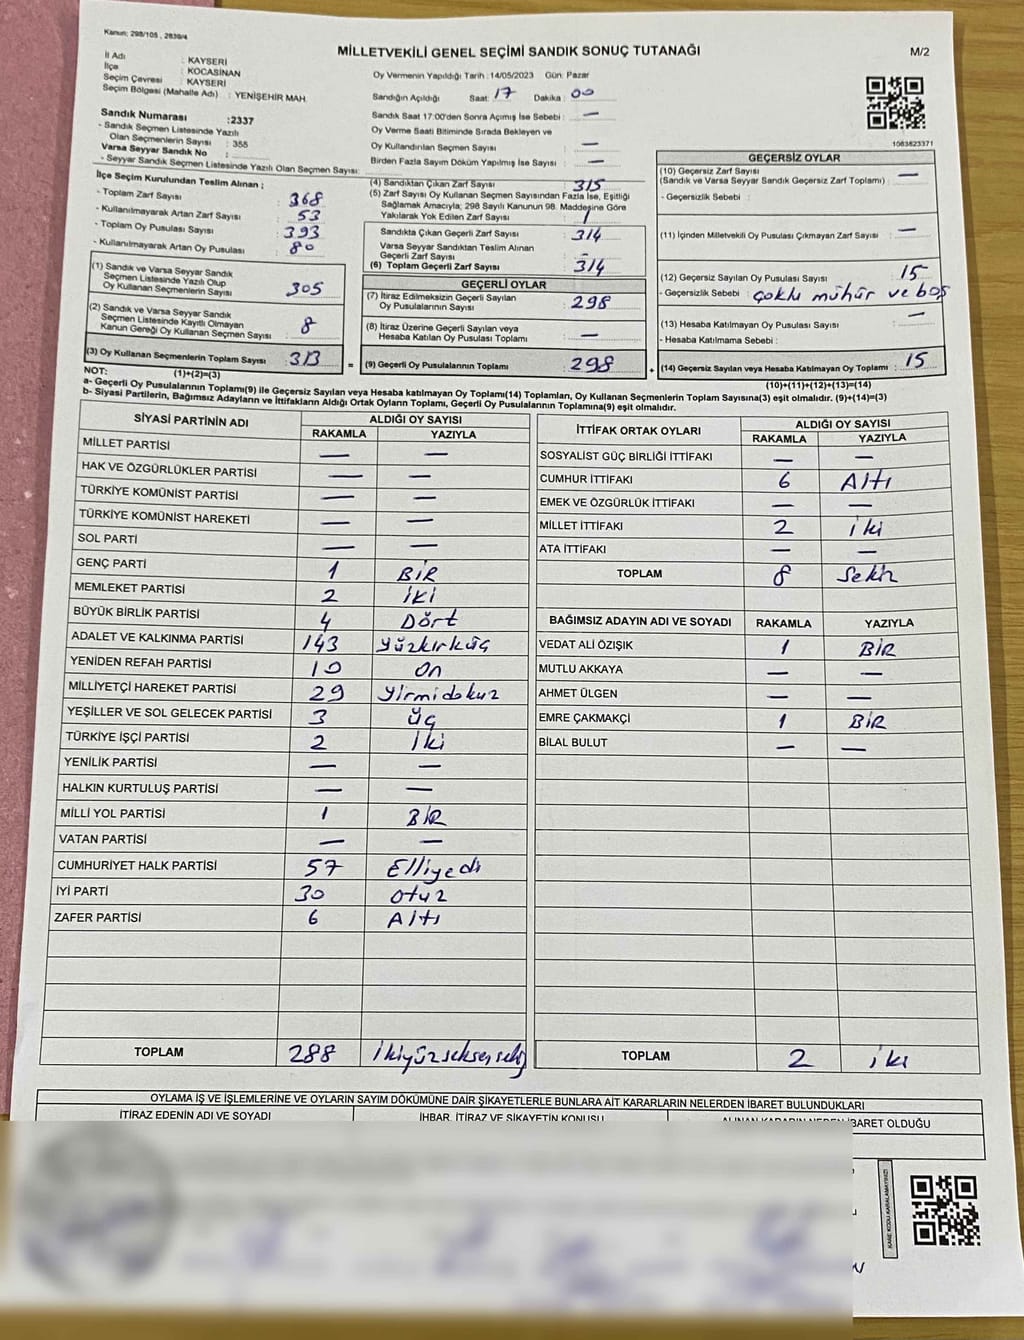 Kanun; 298/105 , 2839/4
MİLLETVEKİLİ GENEL SEÇİMİ SANDIK SONUÇ TUTANAĞI
M/2
İl Adı : KAYSERİ
İlçe : KOCASİNAN
Seçim Çevresi : KAYSERİ
Seçim Bölgesi (Mahalle Adı) : YENİŞEHİR MAH.
Oy Vermenin Yapıldığı Tarih : 14/05/2023 Gün: Pazar
Sandığın Açıldığı Saat: 17 Dakika : 00
Sandık Numarası :2337
- Sandık Seçmen Listesinde Yazılı
Olan Seçmenlerin Sayısı : 355
Varsa Seyyar Sandık No :
- Seyyar Sandık Seçmen Listesinde Yazılı Olan Seçmen Sayısı:
Sandık Saat 17:00'den Sonra Açımış İse Sebebi : —
Oy Verme Saati Bitiminde Sırada Bekleyen ve
Oy Kullandırılan Seçmen Sayısı : —
Birden Fazla Sayım Döküm Yapılmış İse Sayısı : —
1083823371
İlçe Seçim Kurulundan Teslim Alınan ;
- Toplam Zarf Sayısı : 368
- Kullanılmayarak Artan Zarf Sayısı : 53
- Toplam Oy Pusulası : 393
- Kullanılmayarak Artan Oy Pusulası : 80
(1) Sandık ve Varsa Seyyar Sandık
Seçmen Listesinde Yazılı Olup
Oy Kullanan Seçmenlerin Sayısı : 305
(2) Sandık ve Varsa Seyyar Sandık
Seçmen Listesinde Kayıtlı Olmayan
Kanun Gereği Oy Kullanan Seçmen Sayısı : 8
(3) Oy Kullanan Seçmenlerin Toplam Sayısı : 313
(4) Sandıktan Çıkan Zarf Sayısı : 315
(5) Zarf Sayısı Oy Kullanan Seçmen Sayısından Fazla İse, Eşitliği
Sağlamak Amacıyla; 298 Sayılı Kanunun 98. Maddesine Göre
Yakılarak Yok Edilen Zarf Sayısı : 1
Sandıkta Çıkan Geçerli Zarf Sayısı : 314
Varsa Seyyar Sandıktan Teslim Alınan
Geçerli Zarf Sayısı : —
(6) Toplam Geçerli Zarf Sayısı : 314
GEÇERLİ OYLAR
(7) İtiraz Edilmeksizin Geçerli Sayılan
Oy Pusulalarının Sayısı : 298
(8) İtiraz Üzerine Geçerli Sayılan veya
Hesaba Katılan Oy Pusulası Toplamı : —
= (9) Geçerli Oy Pusulalarının Toplamı : 298
GEÇERSİZ OYLAR
(10) Geçersiz Zarf Sayısı
(Sandık ve Varsa Seyyar Sandık Geçersiz Zarf Toplamı) : —
- Geçersizlik Sebebi :
(11) İçinden Milletvekili Oy Pusulası Çıkmayan Zarf Sayısı : —
(12) Geçersiz Sayılan Oy Pusulası Sayısı : 15
- Geçersizlik Sebebi : çoklu mühür ve boş
(13) Hesaba Katılmayan Oy Pusulası Sayısı : —
- Hesaba Katılmama Sebebi :
+ (14) Geçersiz Sayılan veya Hesaba Katılmayan Oy Toplamı : 15
NOT: (1)+(2)=(3)
(10)+(11)+(12)+(13)=(14)
a- Geçerli Oy Pusulalarının Toplamı(9) ile Geçersiz Sayılan veya Hesaba katılmayan Oy Toplamı(14) Toplamları, Oy Kullanan Seçmenlerin Toplam Sayısına(3) eşit olmalıdır. (9)+(14)=(3)
b- Siyasi Partilerin, Bağımsız Adayların ve İttifakların Aldığı Ortak Oyların Toplamı, Geçerli Oy Pusulalarının Toplamına(9) eşit olmalıdır.
SİYASİ PARTİNİN ADI ALDIĞI OY SAYISI
RAKAMLA YAZIYLA
MİLLET PARTİSİ — —
HAK VE ÖZGÜRLÜKLER PARTİSİ — —
TÜRKİYE KOMÜNİST PARTİSİ — —
TÜRKİYE KOMÜNİST HAREKETİ — —
SOL PARTİ — —
GENÇ PARTİ 1 BİR
MEMLEKET PARTİSİ 2 İKİ
BÜYÜK BİRLİK PARTİSİ 4 Dört
ADALET VE KALKINMA PARTİSİ 143 Yüzkırküç
YENİDEN REFAH PARTİSİ 10 On
MİLLİYETÇİ HAREKET PARTİSİ 29 Yirmidokuz
YEŞİLLER VE SOL GELECEK PARTİSİ 3 Üç
TÜRKİYE İŞÇİ PARTİSİ 2 İki
YENİLİK PARTİSİ — —
HALKIN KURTULUŞ PARTİSİ — —
MİLLİ YOL PARTİSİ 1 BİR
VATAN PARTİSİ — —
CUMHURİYET HALK PARTİSİ 57 Elliyedi
İYİ PARTİ 30 Otuz
ZAFER PARTİSİ 6 Altı
TOPLAM 288 İkiyüzseksensekiz
İTTİFAK ORTAK OYLARI ALDIĞI OY SAYISI
RAKAMLA YAZIYLA
SOSYALİST GÜÇ BİRLİĞİ İTTİFAKI — —
CUMHUR İTTİFAKI 6 Altı
EMEK VE ÖZGÜRLÜK İTTİFAKI — —
MİLLET İTTİFAKI 2 İki
ATA İTTİFAKI — —
TOPLAM 8 Sekiz
BAĞIMSIZ ADAYIN ADI VE SOYADI RAKAMLA YAZIYLA
VEDAT ALİ ÖZIŞIK 1 BİR
MUTLU AKKAYA — —
AHMET ÜLGEN — —
EMRE ÇAKMAKÇİ 1 BİR
BİLAL BULUT — —
TOPLAM 2 iki
OYLAMA İŞ VE İŞLEMLERİNE VE OYLARIN SAYIM DÖKÜMÜNE DAİR ŞİKAYETLERLE BUNLARA AİT KARARLARIN NELERDEN İBARET BULUNDUKLARI
İTİRAZ EDENİN ADI VE SOYADI
İHBAR, İTİRAZ VE ŞİKAYETİN KONUSU
ALINAN KARARIN NEDEN İBARET OLDUĞU
KARE KODU KARALAMAYINIZ!